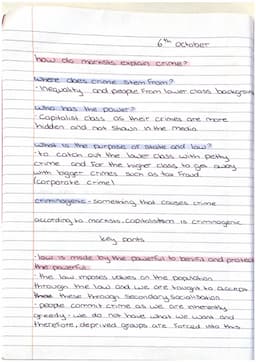 6th October
how do marxists explain crime?
where does crime stem from?
- Inequality and people from lower class background
who has the power?
- Capitalist class as their crimes are more
hidden and not shown in the media
what is the purpose of state and law?
- to catch out the lower class with petty
crime and for the higher class to get away
with bigger crimes such as tax fraud
(corporate crime)
criminogenic - something that causes crime
according to marxists, capitalism is criminogenic
key points
- law is made by the powerful to benefit and protect
the powerful
- the law imposes values on the population
through the law and we are taught to accept
these through secondary socialisation
- people commit crime as we are inherently
greedy - we do not have what we want and
therefore, deprived groups are forced into this